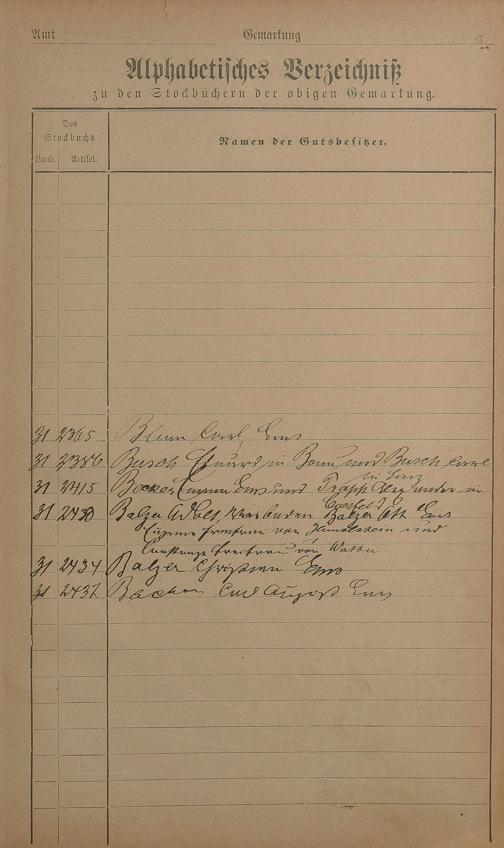 Amt Gemarkung
Alphabetisches Verzeichniß
zu den Stockbüchern der obigen Gemarkung.
Des
Stockbuchs
Band. Artikel.
Namen der Gutsbesitzer.
31 2365 Blum, Carl, Ems
31 2386 Busch Eduard in Bonn und Busch Carl
in Linz
31 2415 Becker Ems und Trapp in
31 2430 Balzer Adolf, Wiesbaden Balzer Ems
Freifrau von und
Constanze Freifrau von
31 2434 Balzer Christian Ems
31 2437 Carl August Ems